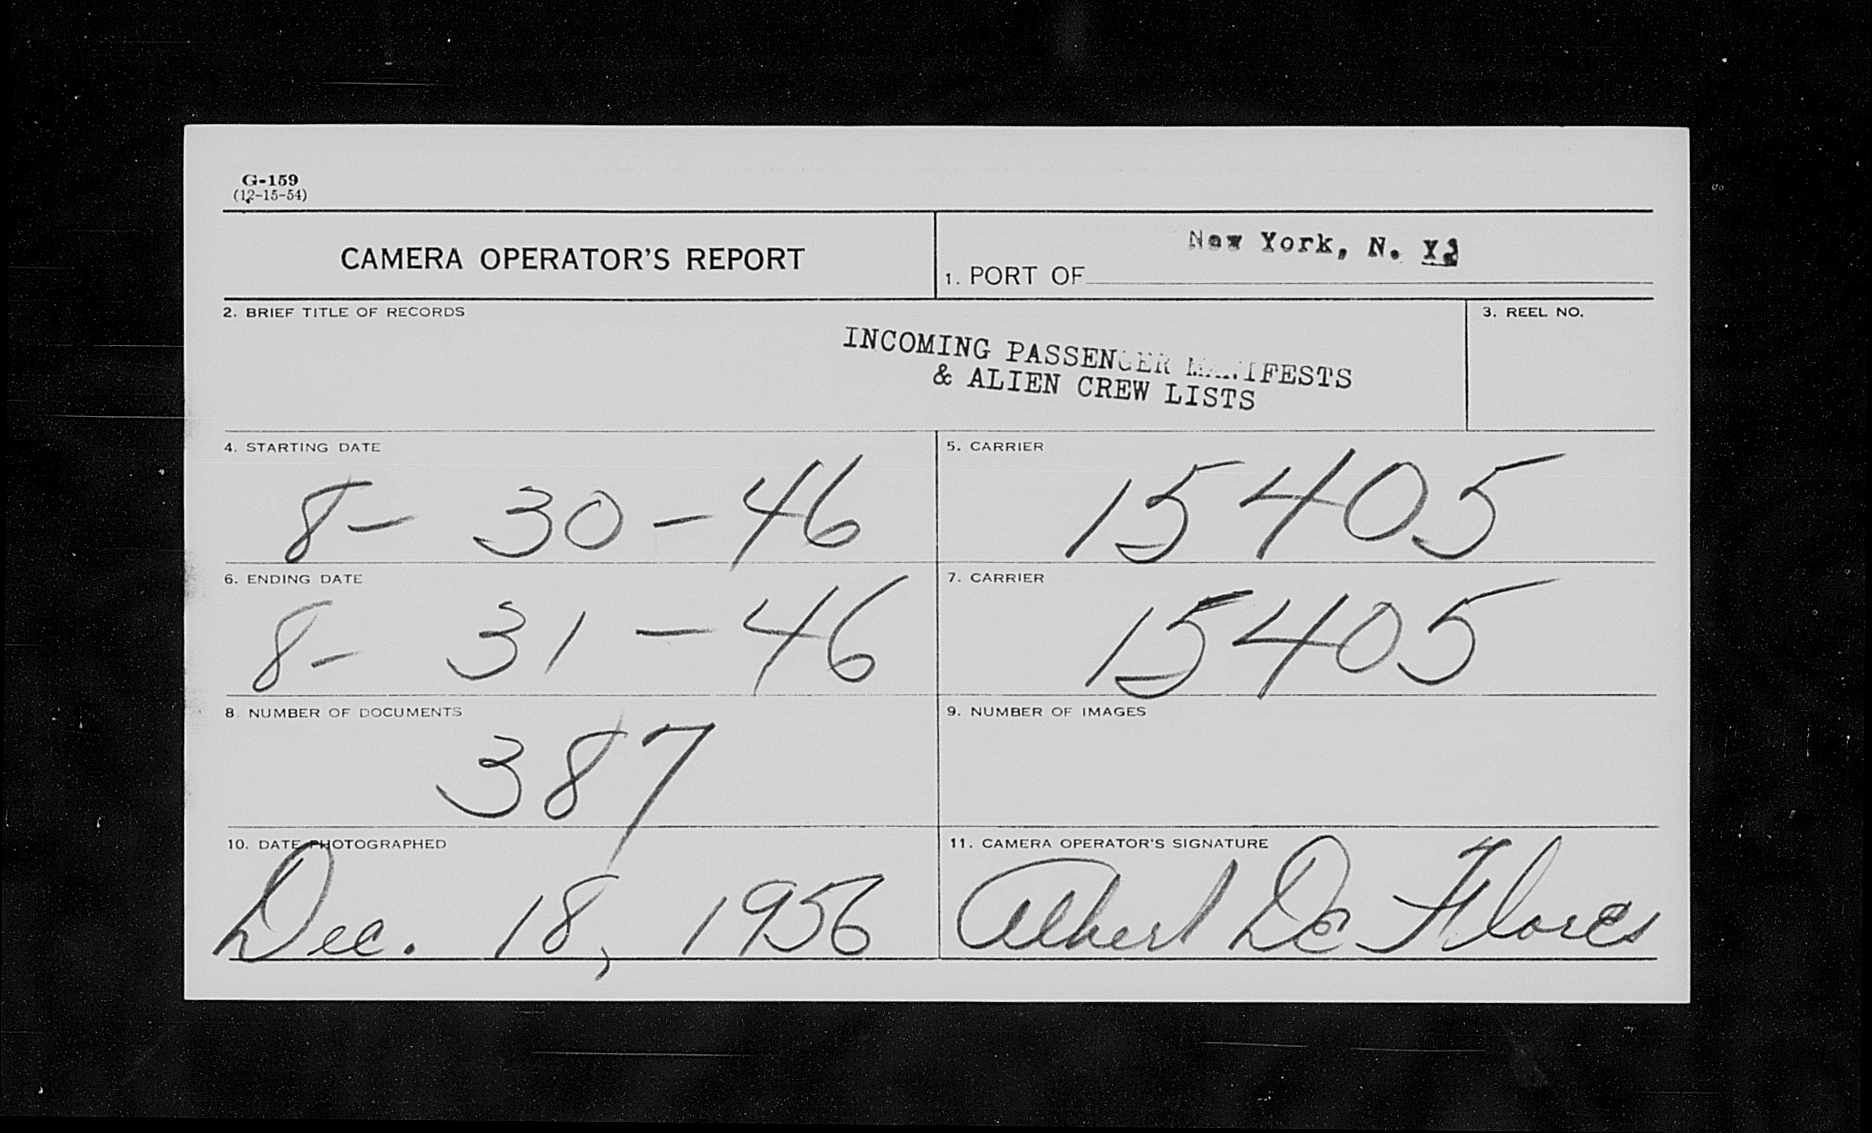 G-159
(12-15-54)
CAMERA OPERATOR'S REPORT
1. PORT OF New York, N. Y.
2. BRIEF TITLE OF RECORDS
INCOMING PASSENGER MANIFESTS
& ALIEN CREW LISTS
3. REEL NO.
4. STARTING DATE
8- 30-46
5. CARRIER
15405
6. ENDING DATE
8- 31-46
7. CARRIER
15405
8. NUMBER OF DOCUMENTS
387
9. NUMBER OF IMAGES
10. DATE PHOTOGRAPHED
Dec. 18, 1956
11. CAMERA OPERATOR'S SIGNATURE
Albert De Flores